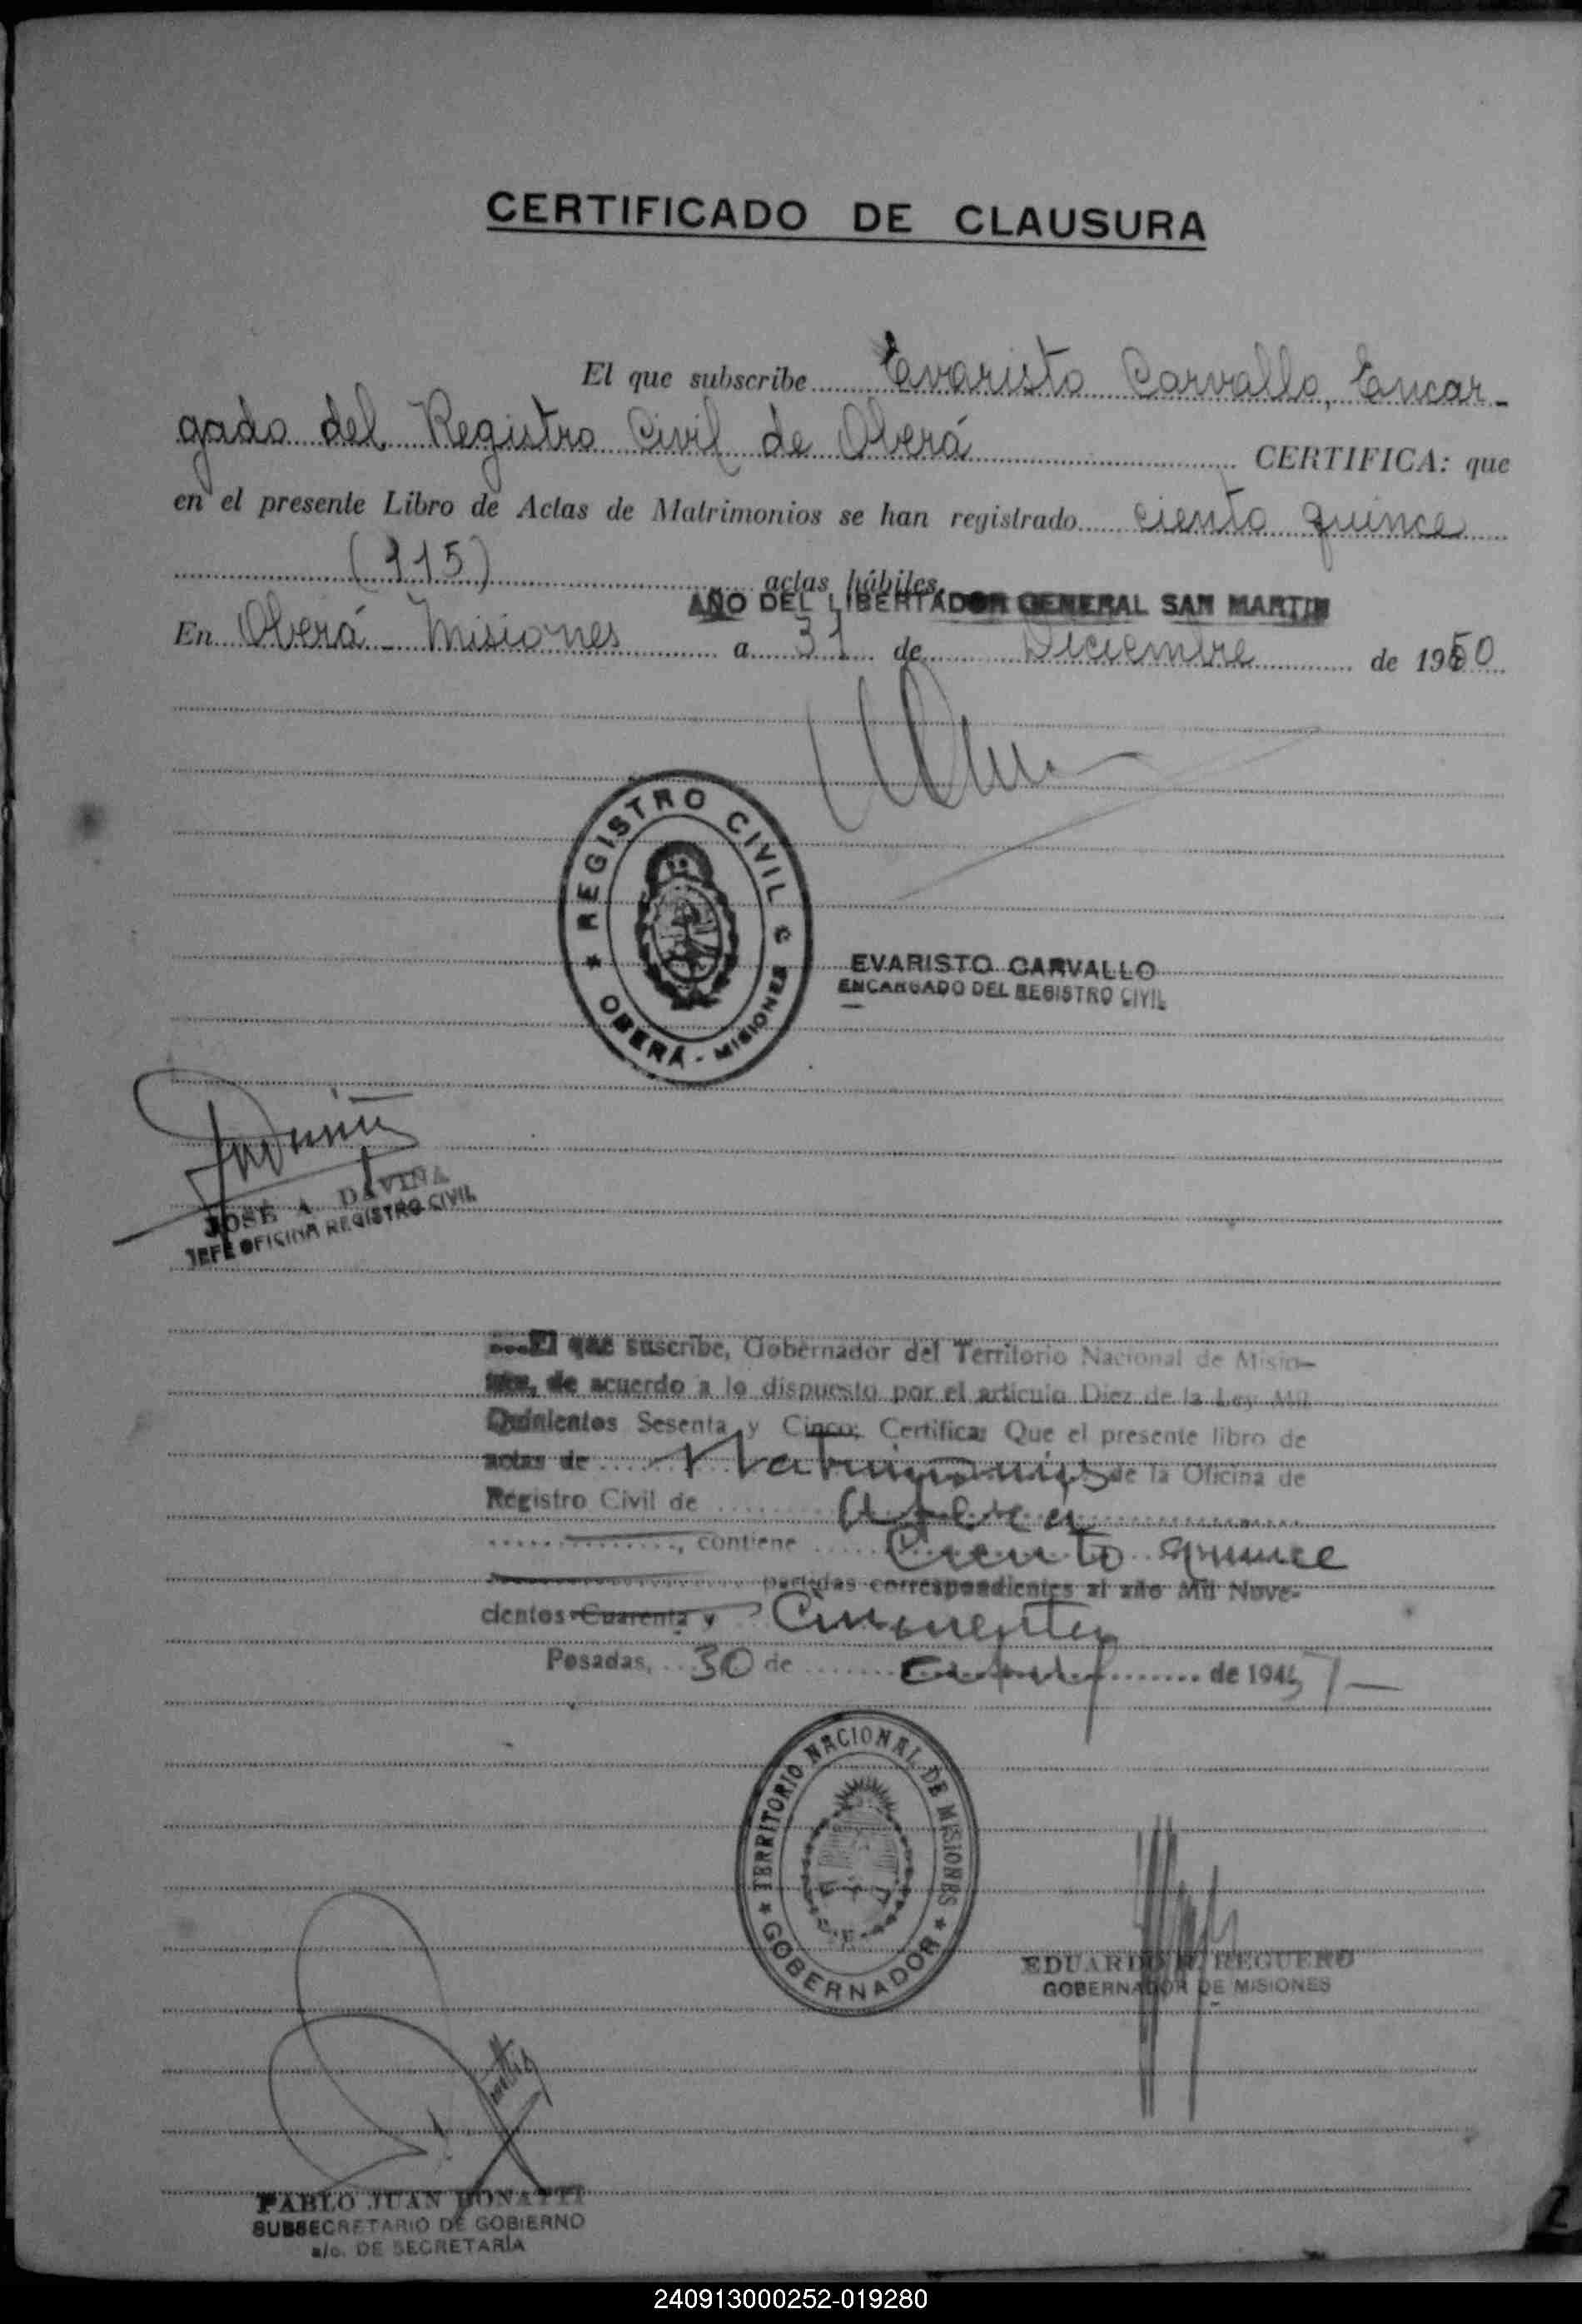 CERTIFICADO DE CLAUSURA
El que subscribe Evaristo Carvallo, Encar-
gado del Registro Civil de Oberá CERTIFICA: que
en el presente Libro de Actas de Matrimonios se han registrado ciento quince
(115) actas hábiles.
AÑO DEL LIBERTADOR GENERAL SAN MARTIN
En Oberá - Misiones a 31 de Diciembre de 1950
REGISTRO CIVIL
OBERÁ - MISIONES
EVARISTO CARVALLO
ENCARGADO DEL REGISTRO CIVIL
JOSÉ A. DAVIÑA
JEFE OFICINA REGISTRO CIVIL
El que suscribe, Gobernador del Territorio Nacional de Misio-
nes, de acuerdo a lo dispuesto por el artículo Diez de la Ley Mil
Quinientos Sesenta y Cinco; Certifica: Que el presente libro de
actas de Matrimonios de la Oficina de
Registro Civil de Oberá
, contiene Ciento quince
partidas correspondientes al año Mil Nove-
cientos Cuarenta y Cincuenta
Posadas, 30 de de 19451
TERRITORIO NACIONAL DE MISIONES
GOBERNADOR
EDUARDO REGUERO
GOBERNADOR DE MISIONES
PABLO JUAN DONATTI
SUBSECRETARIO DE GOBIERNO
a/c. DE SECRETARÍA
240913000252-019280